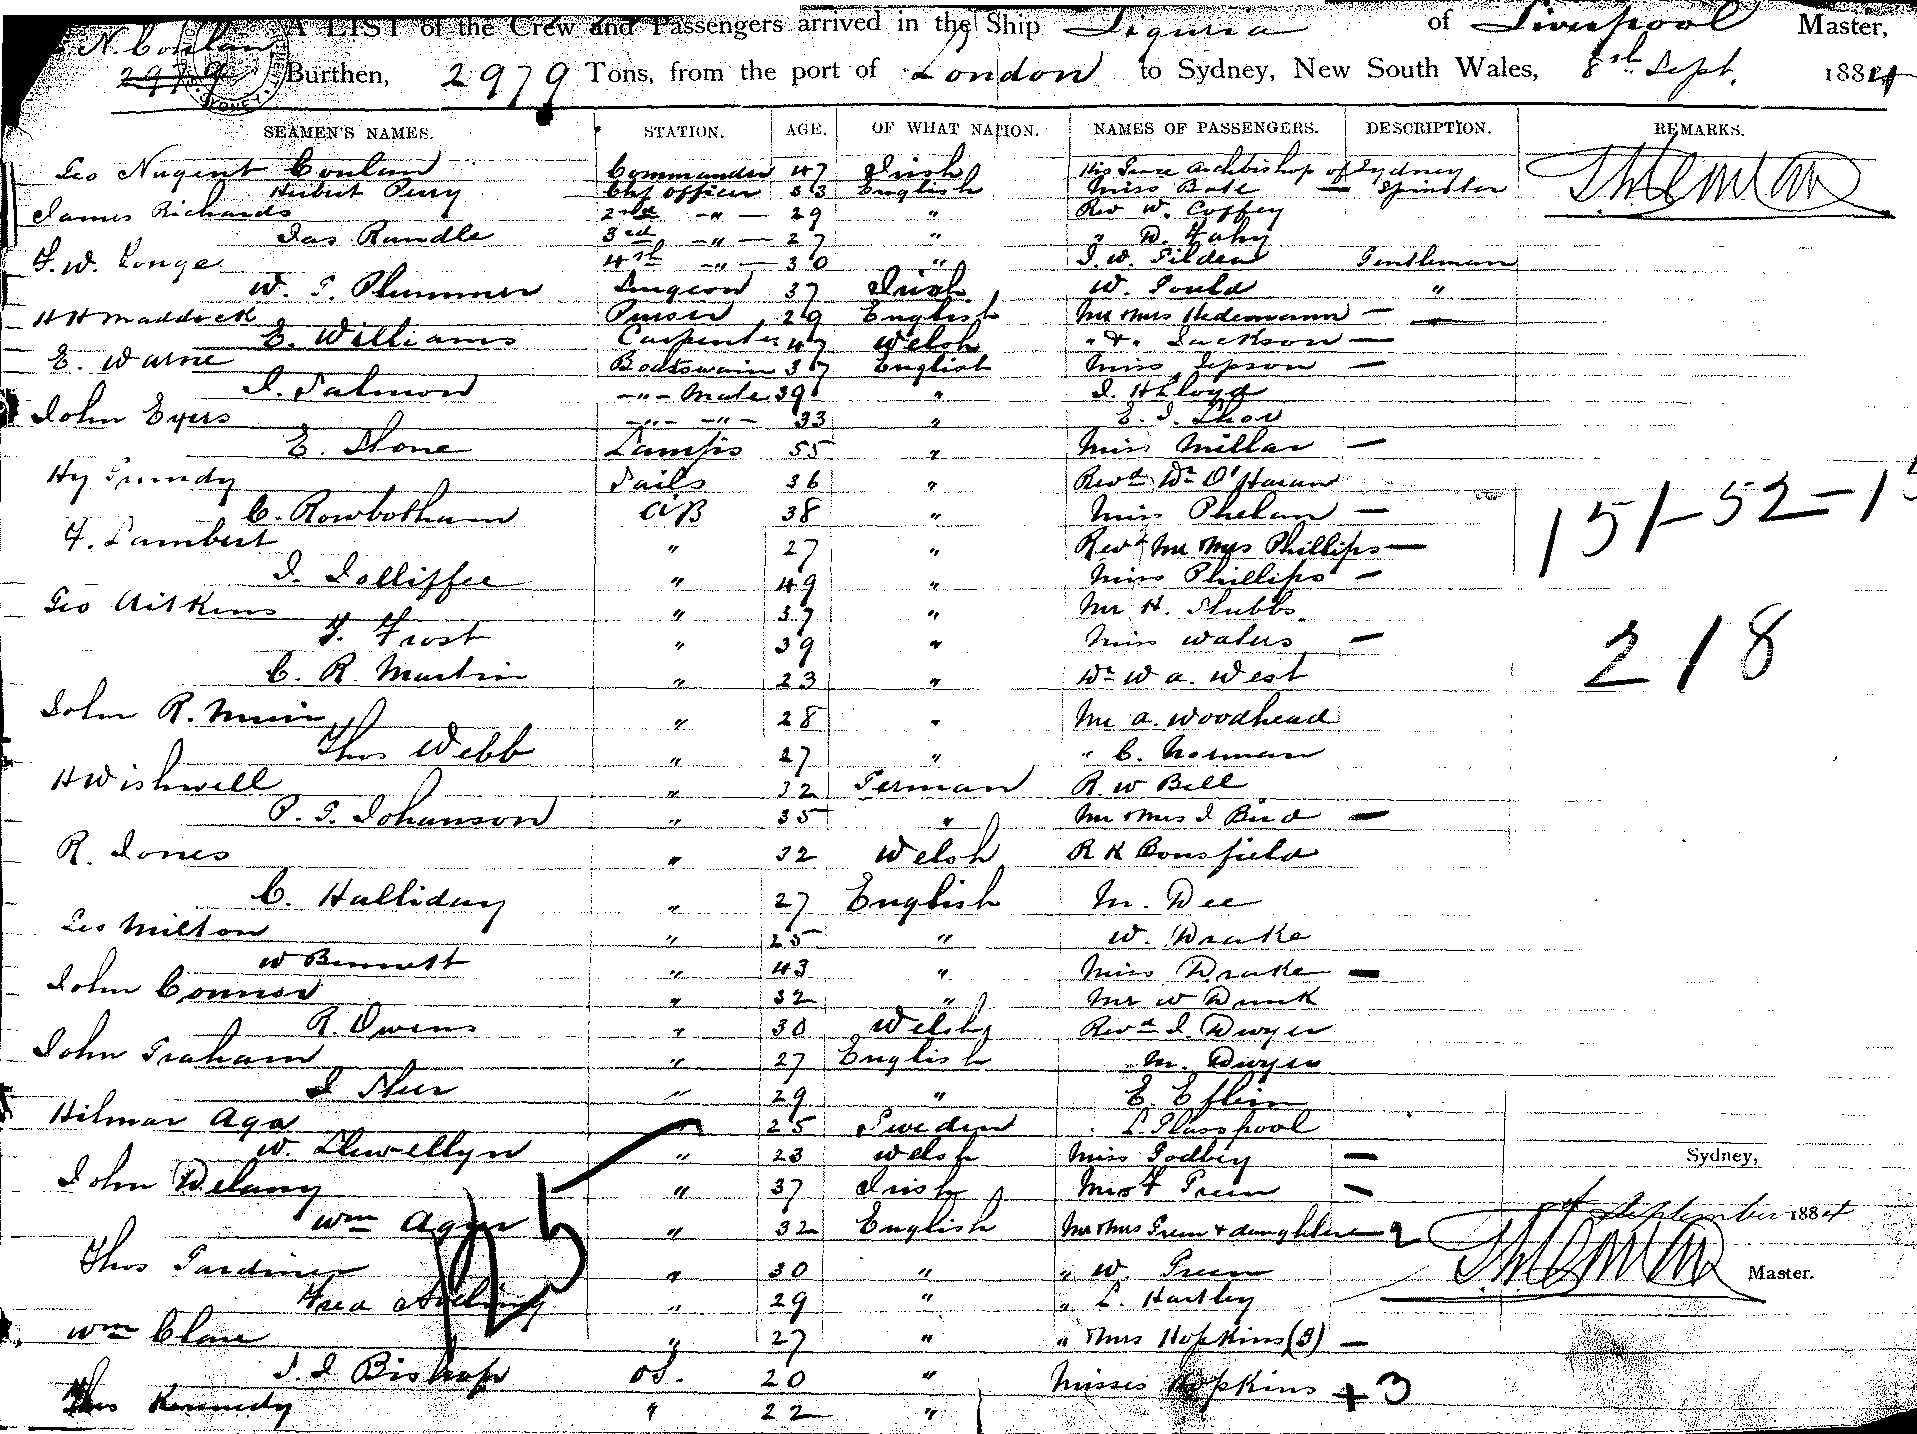 A LIST of the Crew and Passengers arrived in the Ship Liguria of Liverpool Master,
N. Conlan
2979 Burthen, 2979 Tons, from the port of London to Sydney, New South Wales, 8th Sept. 1884
SEAMEN'S NAMES. STATION. AGE. OF WHAT NATION. NAMES OF PASSENGERS. DESCRIPTION. REMARKS.
Geo Nugent Conlan Commander 47 Irish His Grace Archbishop of Sydney
Hubert Perry Chf officer 33 English Miss Bate — Spinster
James Richards 2nd -"- 29 " Rev W. Coffey
Jas Randle 3rd -"- 27 " " D. Fahy
F. W. Longe 4th -"- 30 " J. W. Tilden Gentleman
W. G. Plummer Surgeon 37 Irish W. Gould "
H H Maddock Purser 29 English Mr & Mrs Hedemann —
E. Williams Carpenter 47 Welsh " & " Jackson —
E. Warne Boatswain 37 English Miss Jepson —
J. Salmon -"- Mate 39 " J. H Lloyd
John Eyers -"- -"- 33 " E. J. Thor
E. Stone Lamps 55 " Miss Millar —
Hy Grundy Sails 36 " Revd Wm O'Haran
C. Rowbotham AB 38 " Miss Phelan —
151-52=1
F. Lambert " 27 " Revd Mr & Mrs Phillips —
J. Jolliffee " 49 " Miss Phillips —
Geo Aitkens " 37 " Mr H. Stubbs
F. Frost " 39 " Miss Waters —
218
C. R. Martin " 23 " W. A. West
John R. Muir " 28 " Mr A. Woodhead
Thos Webb " 27 " " C. Norman
H Wishwell " 32 German R. W Bell
P. G. Johanson " 35 " Mr & Mrs J Bird —
R. Jones " 32 Welsh R K Bousfield
C. Halliday " 27 English M. Dee
Geo Milton " 25 " W. Drake
W Bennett " 43 " Miss Drake —
John Connor " 32 " Mr W Dunk
R. Owens " 30 Welsh Revd J. Dwyer
John Graham " 27 English M. Dwyer
J " 29 " E.
Hilmar Aga " 25 Sweden L. Glasspool
W. Llewellyn " 23 Welsh Miss Godbey —
Sydney,
John Delany " 37 Irish Miss F Green —
September 1884
Wm Ager " 32 English Mr & Mrs Green & daughter — 2
Thos Gardiner " 30 " " W. Green
Master.
Fred " 29 " " L. Hartley
125
Wm Clare " 27 " " & Mrs Hopkins (3) —
J. J Bishop OS. 20 " Misses Hopkins + 3
Thos Kennedy " 22 "